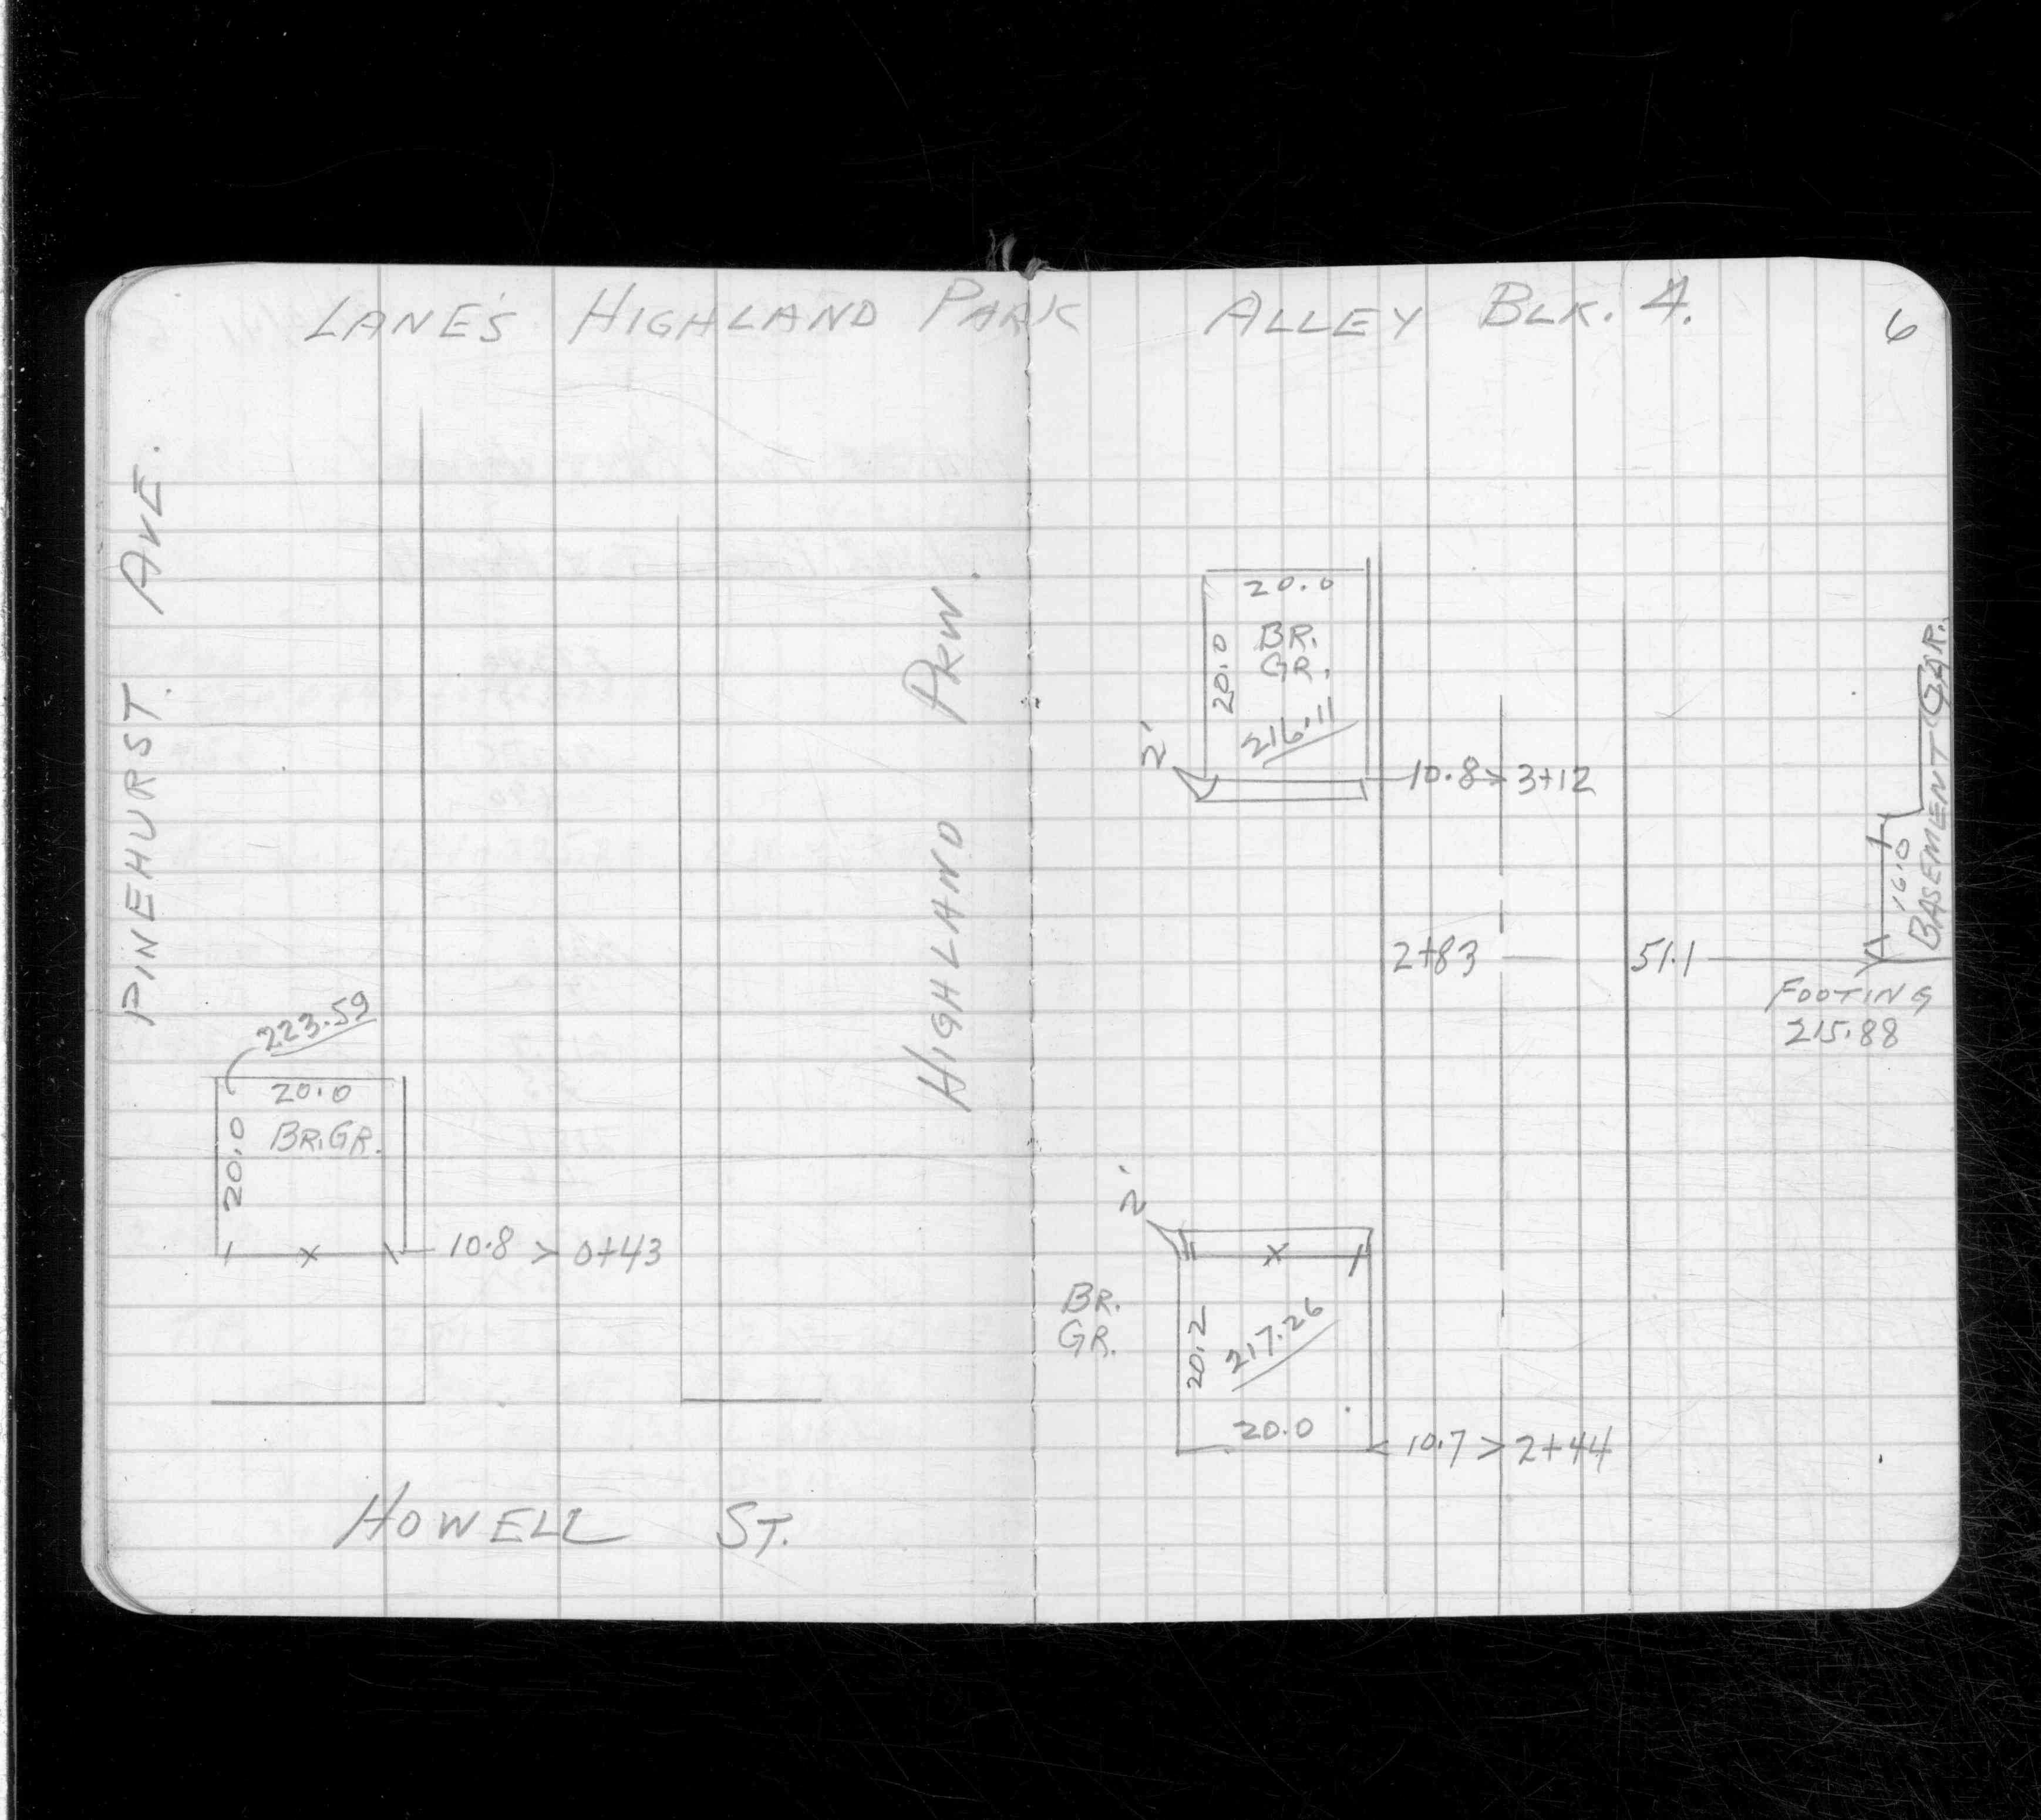 LANE'S HIGHLAND PARK ALLEY BLK. 4.
6
PINEHURST AVE.
223.59
20.0
20.0
BR. GR.
10.8 > 0+43
HIGHLAND PKW.
HOWELL ST.
20.0
20.0
BR.
GR.
216.11
2'
10.8 > 3+12
2+83
51.1
16.0
BASEMENT GAR.
FOOTING
215.88
2'
BR.
GR.
20.2
217.26
20.0
10.7 > 2+44